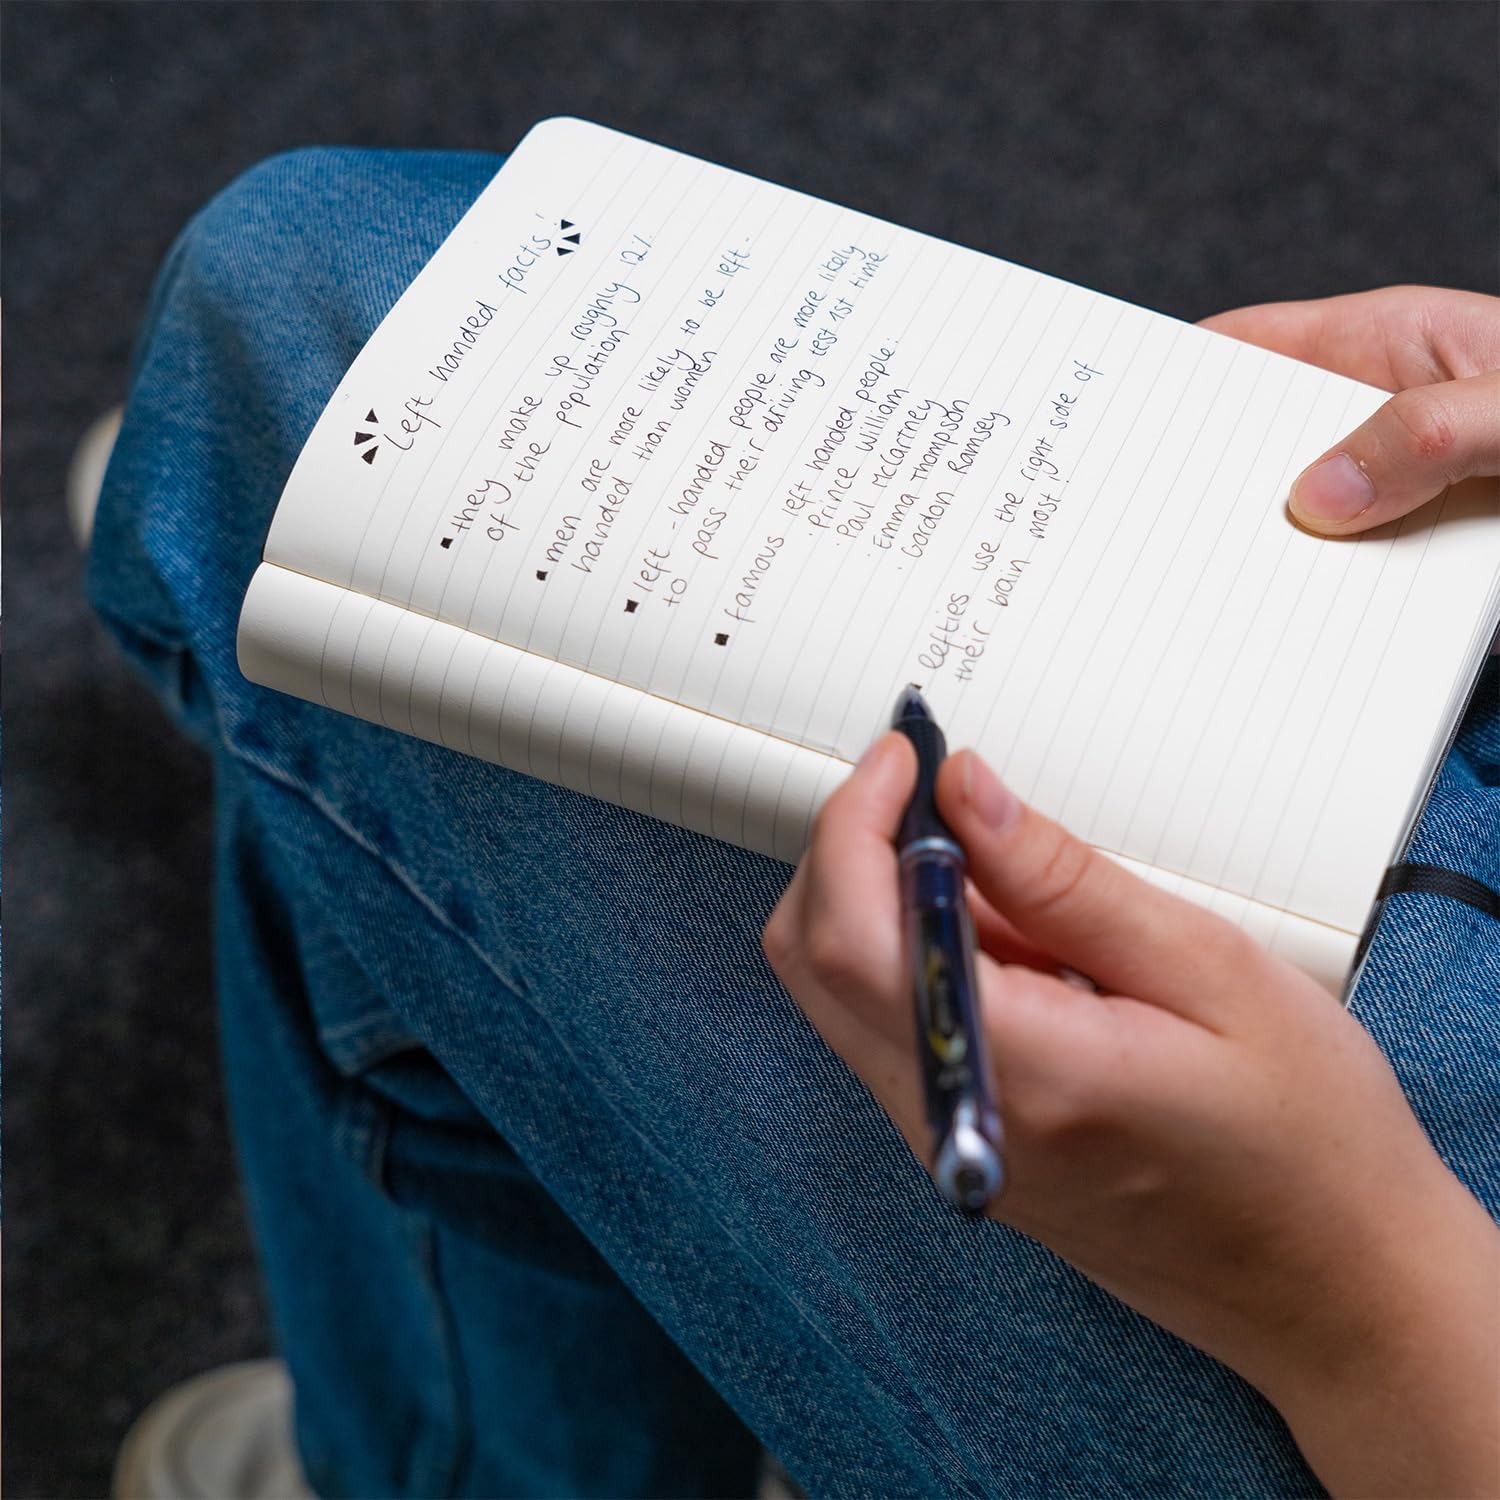 Left handed facts!
▪ they make up roughly 12%
of the population
▪ men are more likely to be left-
handed than women
▪ left-handed people are more likely
to pass their driving test 1st time
▪ famous left handed people:
· Prince William
· Paul McCartney
· Emma Thompson
· Gordon Ramsey
▪ Lefties use the right side of
their brain most!